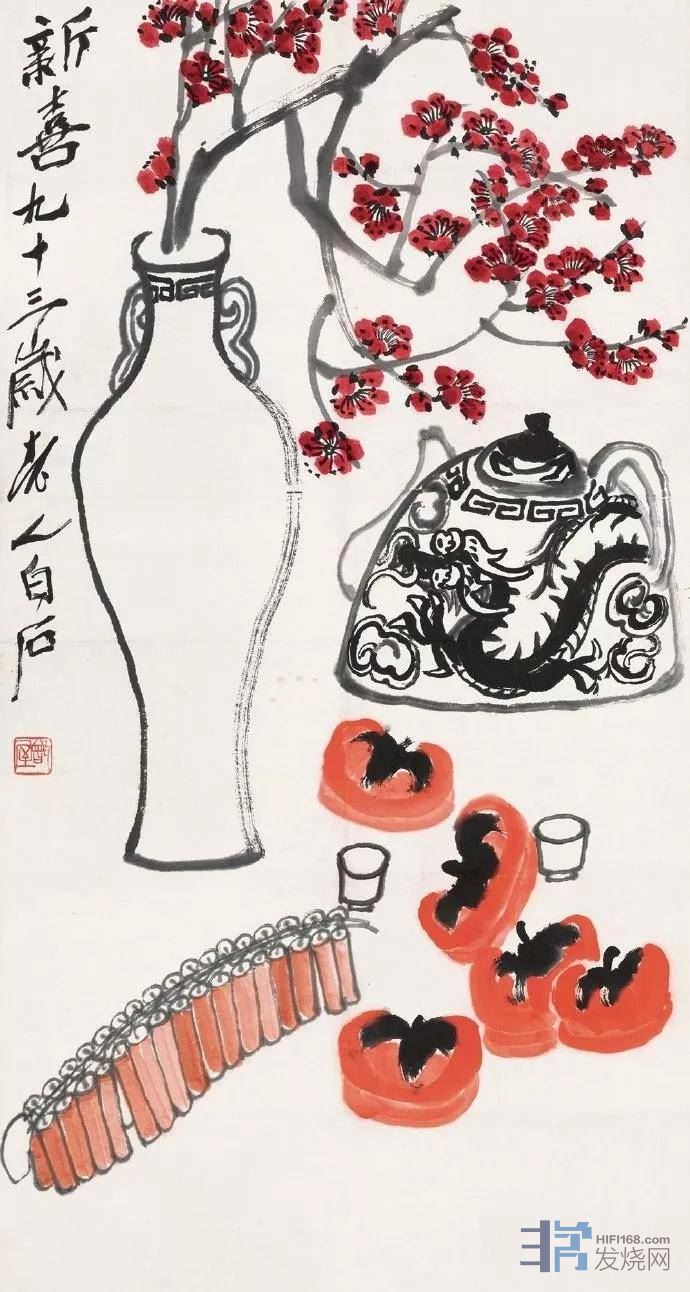 新喜九十三歲老人白石
HIFI168.com
发烧网